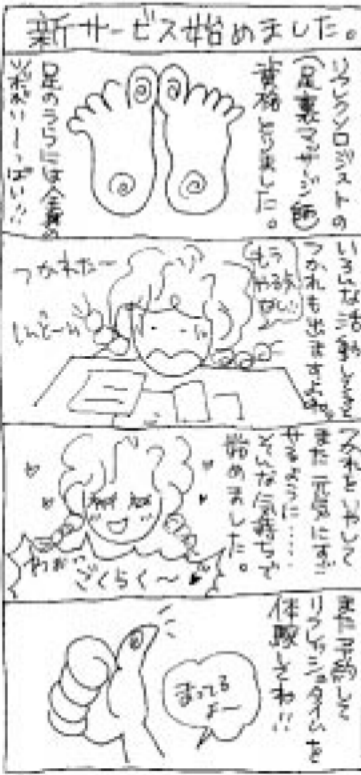 新サービス始めました。
リフレクソロジストの
(足裏マッサージ師)
資格とりました。
足のうらには全身の
ツボがいーっぱい!!
いろんな活動してると
つかれも出ますよね。
もう
やる気
ない…
つかれたー
しんどーい
つかれをいやして
また元気にすご
せるように……
そんな気持ちで
始めました。
ごくらく〜
また予約して
リフレッシュタイムを
体験してね!!
まってる
よー